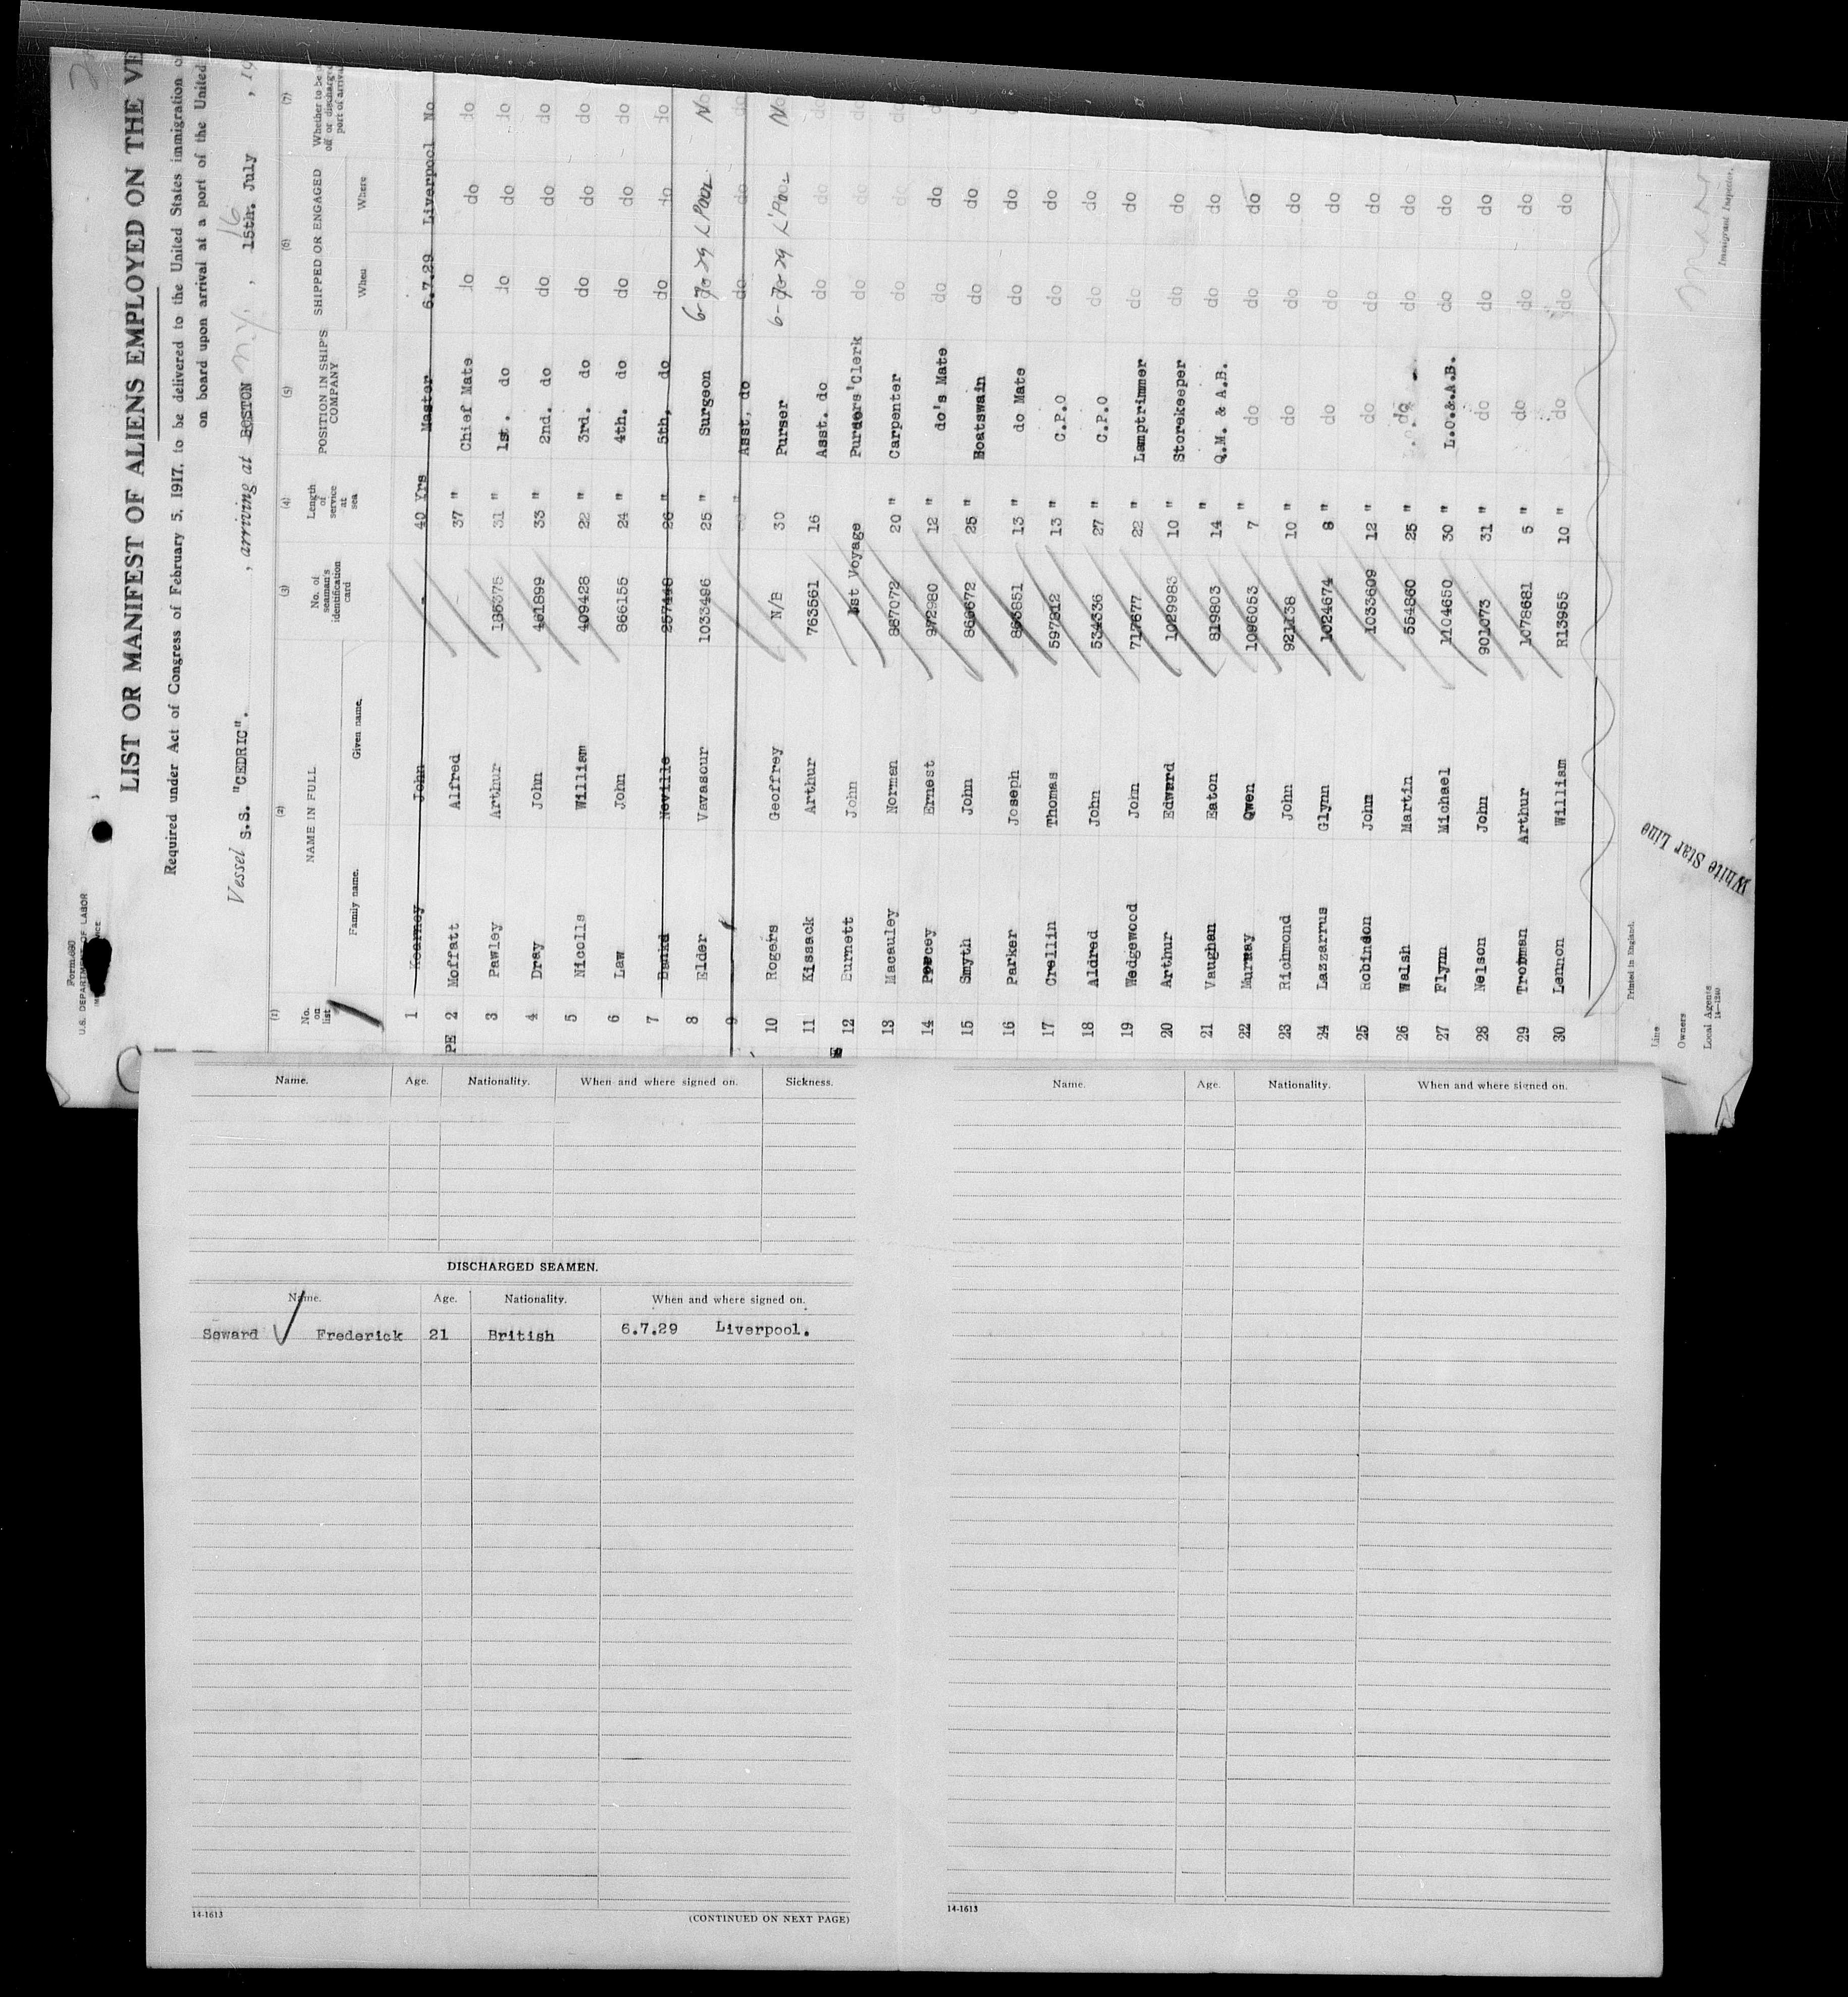 Form 680
U.S. DEPARTMENT OF LABOR
LIST OR MANIFEST OF ALIENS EMPLOYED ON THE VE
Required under Act of Congress of February 5, 1917, to be delivered to the United States immigration o
on board upon arrival at a port of the United
Vessel S.S. "CEDRIC". , arriving at BOSTON N.Y. , 15th. 16 July , 19
(1) (2) (3) (4) (5) (6) (7)
No. on list NAME IN FULL No. of seaman's identification card Length of service at sea POSITION IN SHIP'S COMPANY SHIPPED OR ENGAGED Whether to be off or discharge port of arrival
Family name. Given name. When Where
1 Kearney John - 40 Yrs Master 6.7.29 Liverpool No
PE 2 Moffatt Alfred - 37 " Chief Mate do do do
3 Pawley Arthur 185375 31 " 1st. do do do do
4 Dray John 461899 33 " 2nd. do do do do
5 Nicolls William 409428 22 " 3rd. do do do do
6 Law John 866155 24 " 4th. do do do do
7 Banks Neville 257448 26 " 5th, do do do do
8 Elder Vavasour 1033496 25 " Surgeon 6-7-29 L'Pool No
9 " Asst, do do do do
10 Rogers Geoffrey N/B 30 Purser 6-7-29 L'Pool No
11 Kissack Arthur 763561 16 Asst. do do do do
12 Burnett John 1st Voyage Pursers'Clerk do do do
13 Macauley Norman 867072 20 " Carpenter do do do
14 Peercey Ernest 972980 12 " do's Mate do do d
15 Smyth John 866672 25 " Boatswain do do
16 Parker Joseph 863851 13 " do Mate do do
17 Crellin Thomas 597812 13 " C.P.O do do
18 Aldred John 534336 27 " C.P.O do do
19 Wedgewood John 717677 22 " Lamptrimmer do do
20 Arthur Edward 1029983 10 " Storekeeper do do
21 Vaughan Eaton 819803 14 " Q.M. & A.B. do do
22 Murray Owen 1096053 7 " do do do
23 Richmond John 921138 10 " do do do
24 Lazzarrus Glynn 1024674 8 " do do do
25 Robindon John 1033609 12 " do do do
26 Walsh Martin 554860 25 " do do do
27 Flynn Michael 1104650 30 " L.O.&.A.B. do do
28 Nelson John 901073 31 " do do do
29 Trotman Arthur 1078681 5 " do do do
30 Lennon William R13955 10 " do do do
Line
Owners
Local Agents
14-1240
Printed in England.
White Star Line
Immigrant Inspector.
Name. Age. Nationality. When and where signed on. Sickness.
DISCHARGED SEAMEN.
Name. Age. Nationality. When and where signed on.
Seward Frederick 21 British 6.7.29 Liverpool.
14-1613
(CONTINUED ON NEXT PAGE)
Name. Age. Nationality. When and where signed on.
14-1613